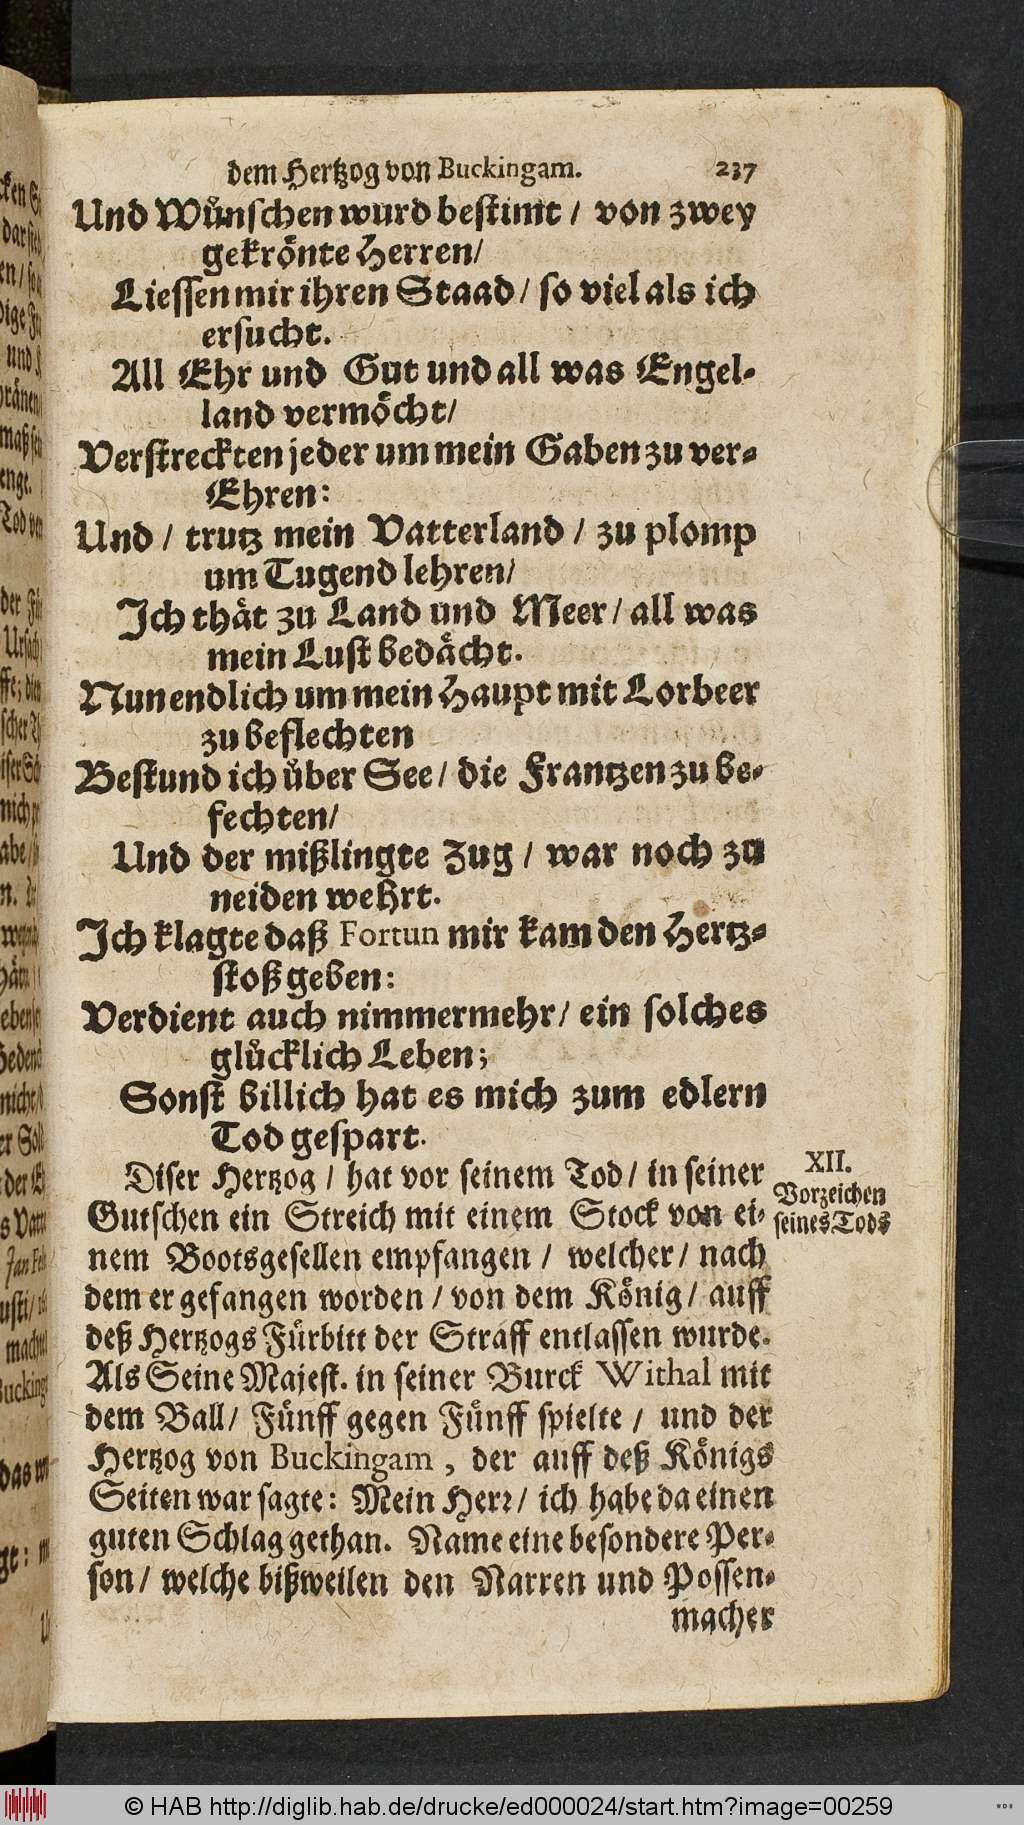 dem Hertzog von Buckingam. 237
Und Wůnschen wurd bestimt / von zwey
gekrönte Herren/
Liessen mir ihren Staad / so viel als ich
ersucht.
All Ehr und Gut und all was Engel-
land vermöcht/
Verstreckten jeder um mein Gaben zu ver-
Ehren:
Und / trutz mein Vatterland / zu plomp
um Tugend lehren/
Ich thät zu Land und Meer / all was
mein Lust bedächt.
Nun endlich um mein Haupt mit Lorbeer
zu beflechten
Bestund ich ůber See / die Frantzen zu be-
fechten/
Und der mißlingte Zug / war noch zu
neiden wehrt.
Ich klagte daß Fortun mir kam den Hertz-
stoß geben:
Verdient auch nimmermehr / ein solches
glůcklich Leben;
Sonst billich hat es mich zum edlern
Tod gespart.
Diser Hertzog / hat vor seinem Tod / in seiner
XII.
Vorzeichen
seines Tods
Gutschen ein Streich mit einem Stock von ei-
nem Bootsgesellen empfangen / welcher / nach
dem er gefangen worden / von dem König / auff
deß Hertzogs Fürbitt der Straff entlassen wurde.
Als Seine Majest. in seiner Burck Withal mit
dem Ball / Fünff gegen Fünff spielte / und der
Hertzog von Buckingam, der auff deß Königs
Seiten war sagte: Mein Herr / ich habe da einen
guten Schlag gethan. Name eine besondere Per-
son / welche bißweilen den Narren und Possen-
macher
© HAB http://diglib.hab.de/drucke/ed000024/start.htm?image=00259